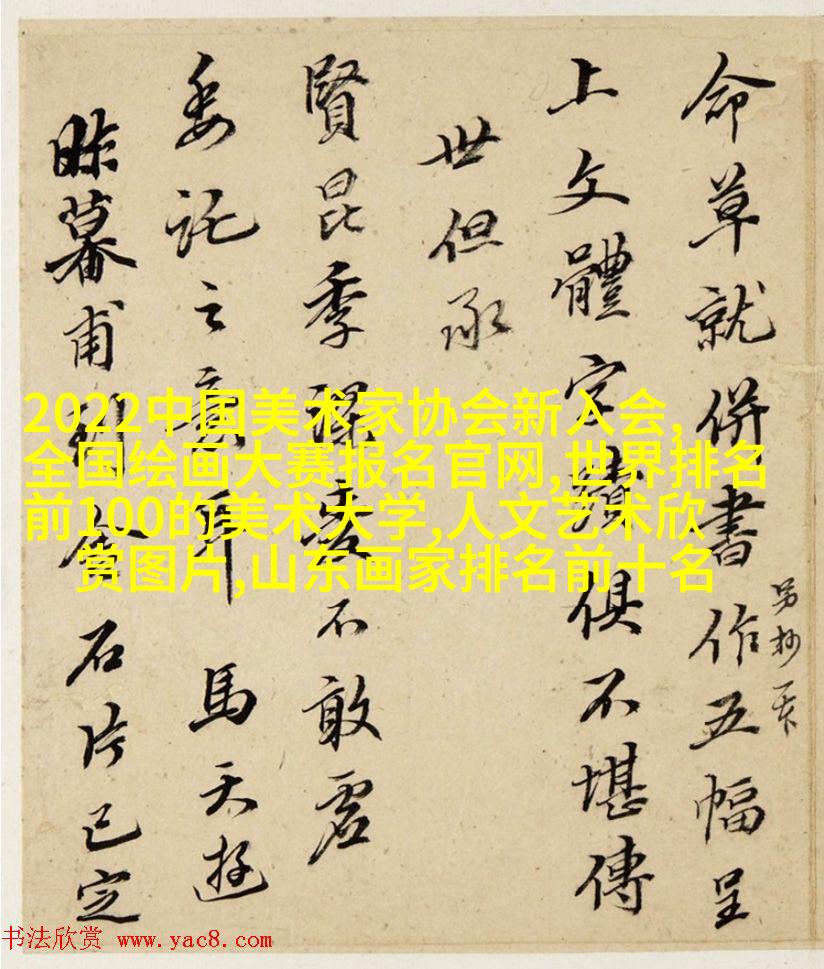 命草就併書作五幅呈
另抄一本
上文體字蹟俱不堪傳
世但承
賢昆季深愛不敢虛
委託之意耳 馬天游
昨暮甫到 石片已定
2022中国美术家协会新入会,
全国绘画大赛报名官网,世界排名
前100的美术大学,人文艺术欣
赏图片,山东画家排名前十名
书法欣赏 www.yac8.com